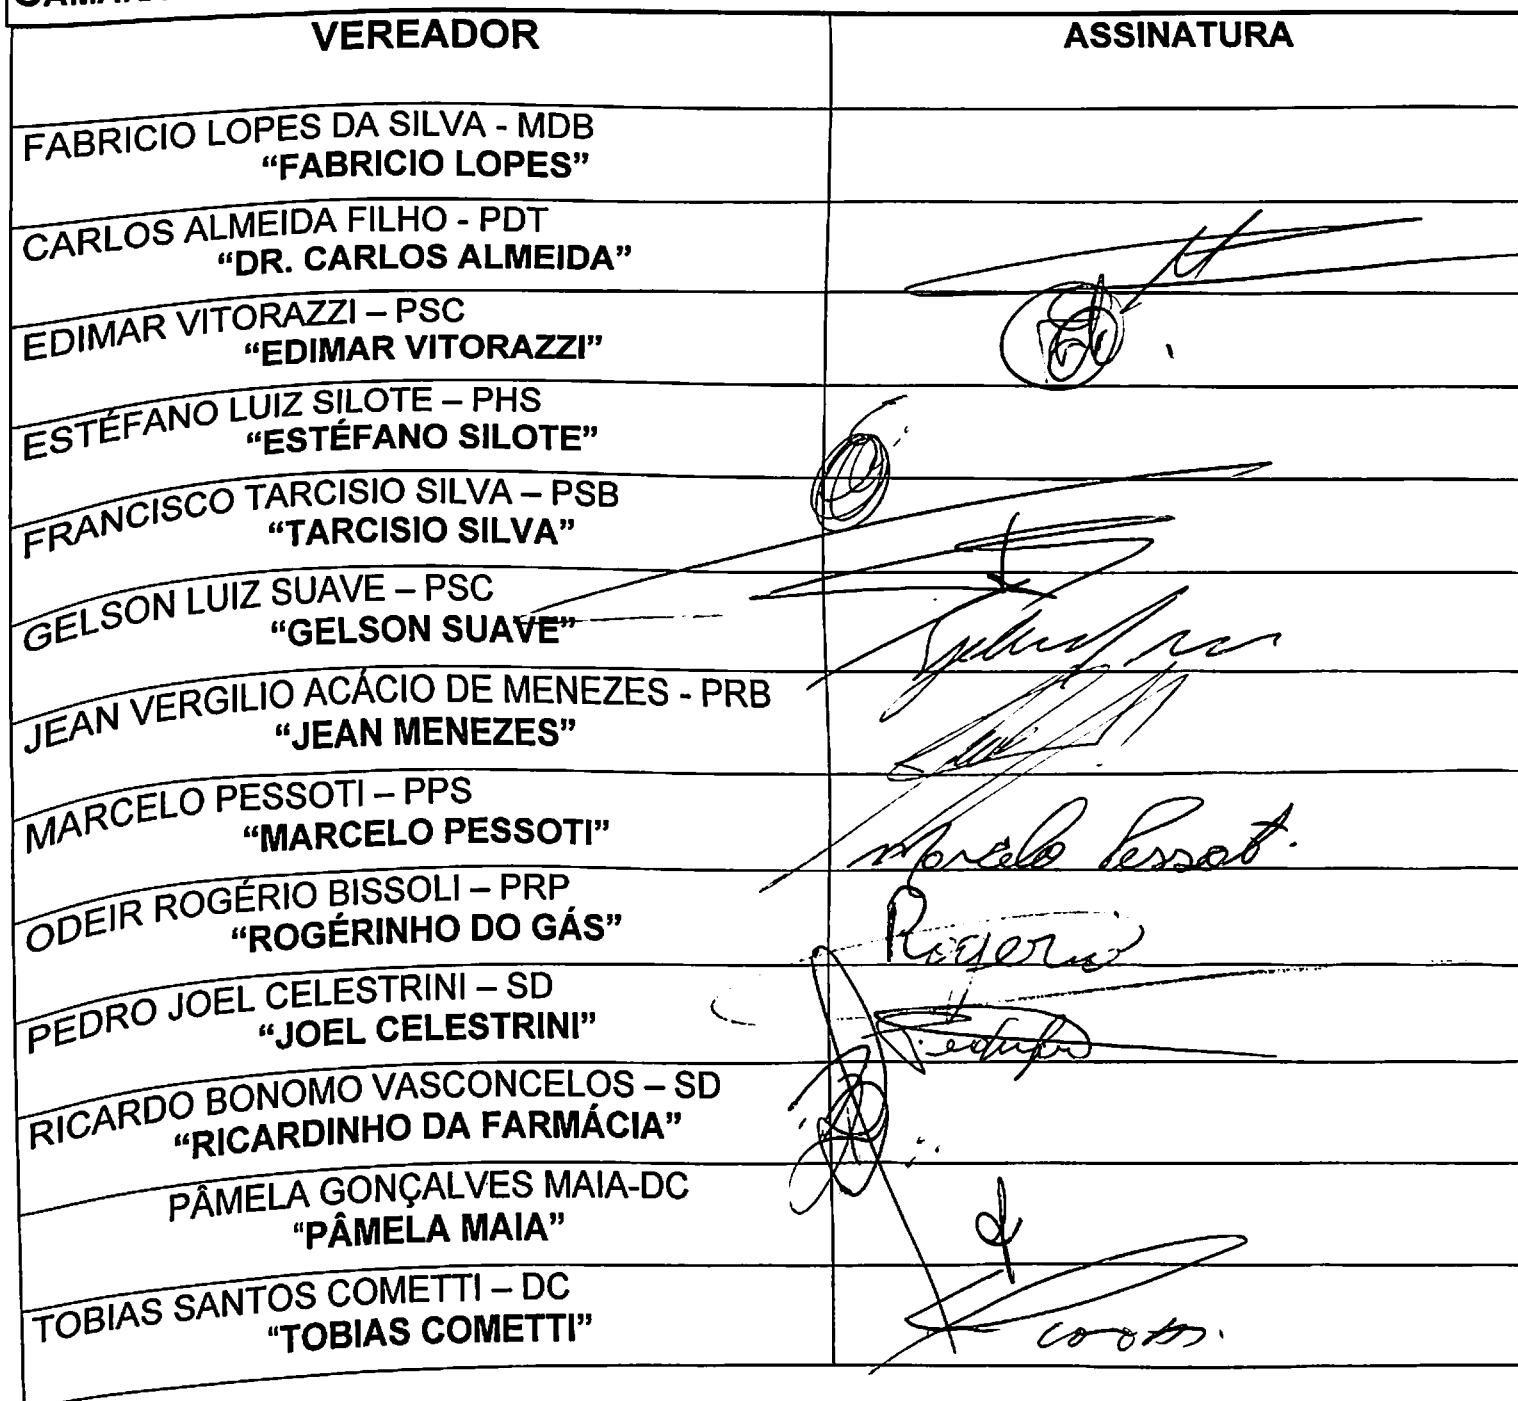 VEREADOR
ASSINATURA
FABRICIO LOPES DA SILVA - MDB
“FABRICIO LOPES”
CARLOS ALMEIDA FILHO - PDT
“DR. CARLOS ALMEIDA”
EDIMAR VITORAZZI – PSC
“EDIMAR VITORAZZI”
ESTÉFANO LUIZ SILOTE – PHS
“ESTÉFANO SILOTE”
FRANCISCO TARCISIO SILVA – PSB
“TARCISIO SILVA”
GELSON LUIZ SUAVE – PSC
“GELSON SUAVE”
JEAN VERGILIO ACÁCIO DE MENEZES - PRB
“JEAN MENEZES”
MARCELO PESSOTI – PPS
“MARCELO PESSOTI”
Marcelo Pessoti
ODEIR ROGÉRIO BISSOLI – PRP
“ROGÉRINHO DO GÁS”
Rogerio
PEDRO JOEL CELESTRINI – SD
“JOEL CELESTRINI”
RICARDO BONOMO VASCONCELOS – SD
“RICARDINHO DA FARMÁCIA”
PÂMELA GONÇALVES MAIA-DC
“PÂMELA MAIA”
TOBIAS SANTOS COMETTI – DC
“TOBIAS COMETTI”